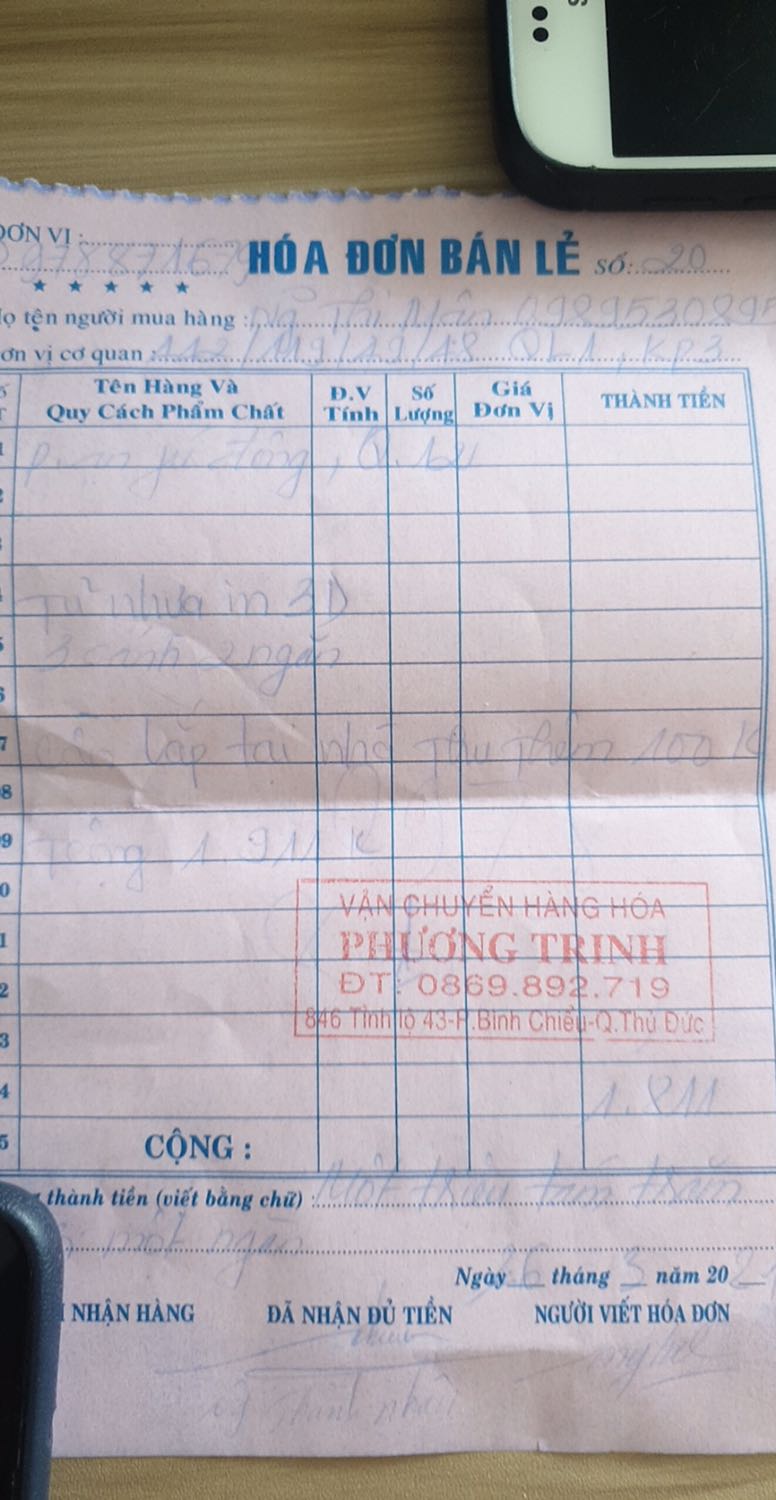 ĐƠN VỊ :
0978871679
HÓA ĐƠN BÁN LẺ SỐ: 20
★ ★ ★ ★ ★
ọ tện người mua hàng : Thị 0989530895
ơn vị cơ quan : 112/119/19/18 QL1, KP3
Tên Hàng Và Quy Cách Phẩm Chất
Đ.V Tính
Số Lượng
Giá Đơn Vị
THÀNH TIỀN
đông, Q.
Tủ nhựa in 3D
3 cánh 2 ngăn
7 cần lắp tại nhà thu thêm 100 K
8
9 Tổng 1.911 K
0
VẬN CHUYỂN HÀNG HÓA
1 PHƯƠNG TRINH
2 ĐT: 0869.892.719
846 Tỉnh lộ 43-P.Bình Chiểu-Q.Thủ Đức
3
4 1.811
5 CỘNG :
thành tiền (viết bằng chữ) : Một triệu tám trăm
một ngàn
Ngày 26 tháng 3 năm 20
NHẬN HÀNG
ĐÃ NHẬN ĐỦ TIỀN
NGƯỜI VIẾT HÓA ĐƠN